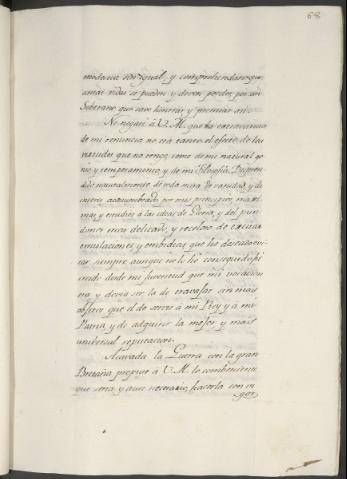 68
modo con igual, y comprehendan que
amás vidas se pueden y deven perder por un
Soberano, que save honrrar y premiar asi.
No negaré à V.M. que la
de mi renuncia no era tanto el efecto de las
virtudes que no tengo, como de mi natural ge
nio, y temperamento, y de mi Filosofia. Despren
dido naturalmente de toda mira de vanidad, y de
interes, acostumbrado por mis principios, maxi
mas y estudios à las ideas de Gloria, y del pun
donor mas delicado, y receloso de excitar
emulaciones, y embidias, que he deseado evi
tar siempre, aunque no lo hé conseguido,
desde mi Juventud que mi vocacion
era y devia ser, la de travajar sin mas
objeto que el de servir à mi Rey, y à mi
Patria, y de adquirir la mejor y mas
universal reputacion.
Acavada la Guerra con la gran
Bretaña propuse à V.M. lo combeniente
que seria, y aun necesario, hacerla con